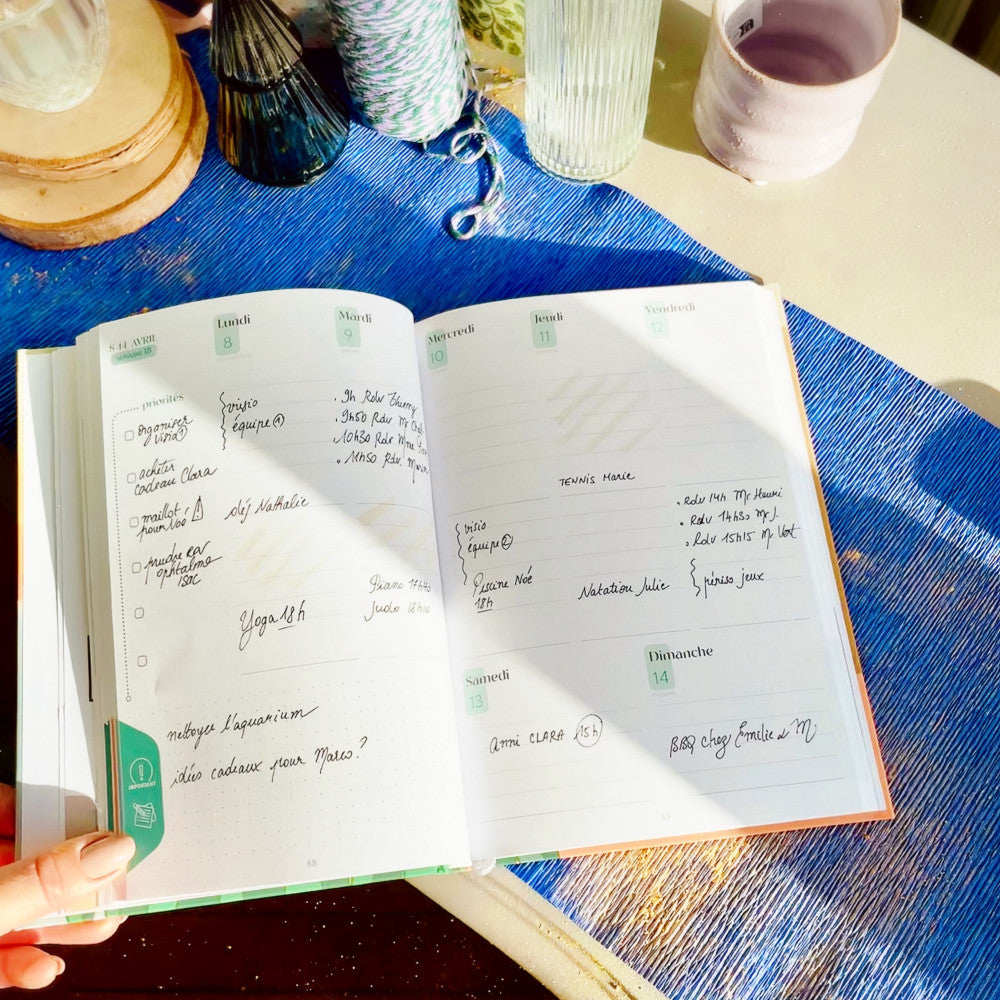 8-14 AVRIL
SEMAINE 15
priorités
organiser
visio ①
acheter
cadeau Clara
maillot
pour Noé
prendre RDV
ophtalmo
IMPORTANT
Lundi
8
visio
équipe ①
déj Nathalie
Yoga 18h
Mardi
9
• 9h Rdv Thierry
• 9h50 Rdv Mr
• 10h30 Rdv Mme
• 11h50 Rdv.
Piano 17h
Judo 18h
nettoyer l'aquarium
idées cadeaux pour Marco ?
68
Mercredi
10
visio
équipe ②
Piscine Noé
18h
Jeudi
11
TENNIS Marie
Natation Julie
Vendredi
12
• Rdv 14h Mr Henri
• Rdv 14h30 Mr J.
• Rdv 15h15 Mr Vert
périsco jeux
Samedi
13
Anni CLARA 15h
Dimanche
14
BBQ chez Emilie & M
69